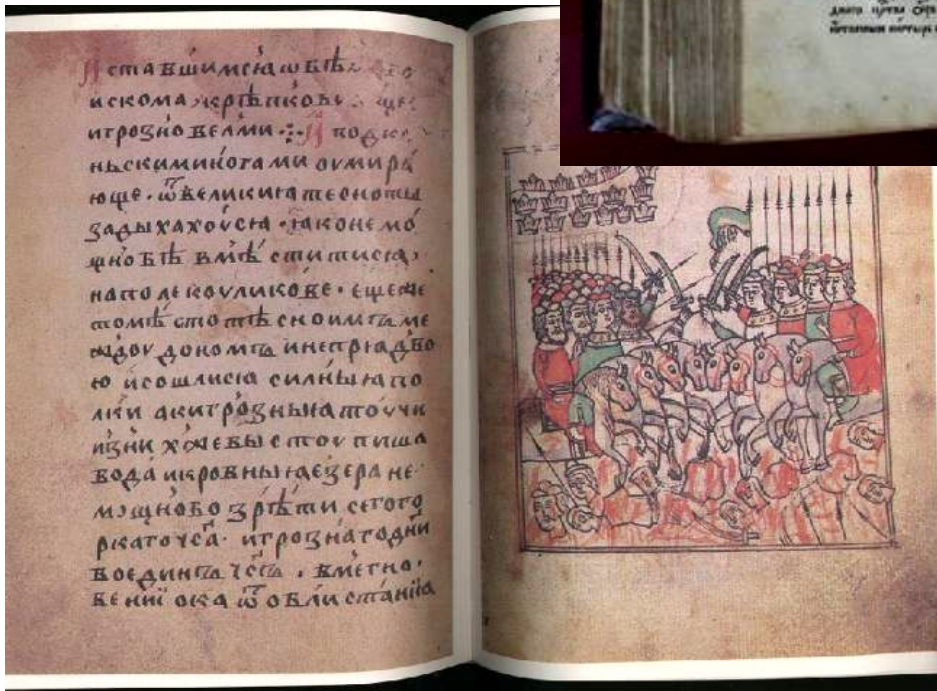 ставшимсꙗ ѡбѣ
искома крѣпков ще
игрозно велми ⁘ А подко
ньскиминогами оумира
юще · ѿвеликиꙗ тесноты
задыхахоусꙗ · ꙗконемо
щнобѣ вмѣ ститисꙗ
наполекоуликове · ещеже
томѣсто тѣсноимъ ме
ждоу дономъ инепрꙗдво
ю исошлисꙗ силныꙗпо
лки акигрозныꙗтоучи
изних жевыстоупиша
вода икровныꙗезеране
мощнобо зрѣти сегого
ркагочса · игрознагодни
воединъ чсъ · вмегно
вении ока ѿ облистаниꙗ